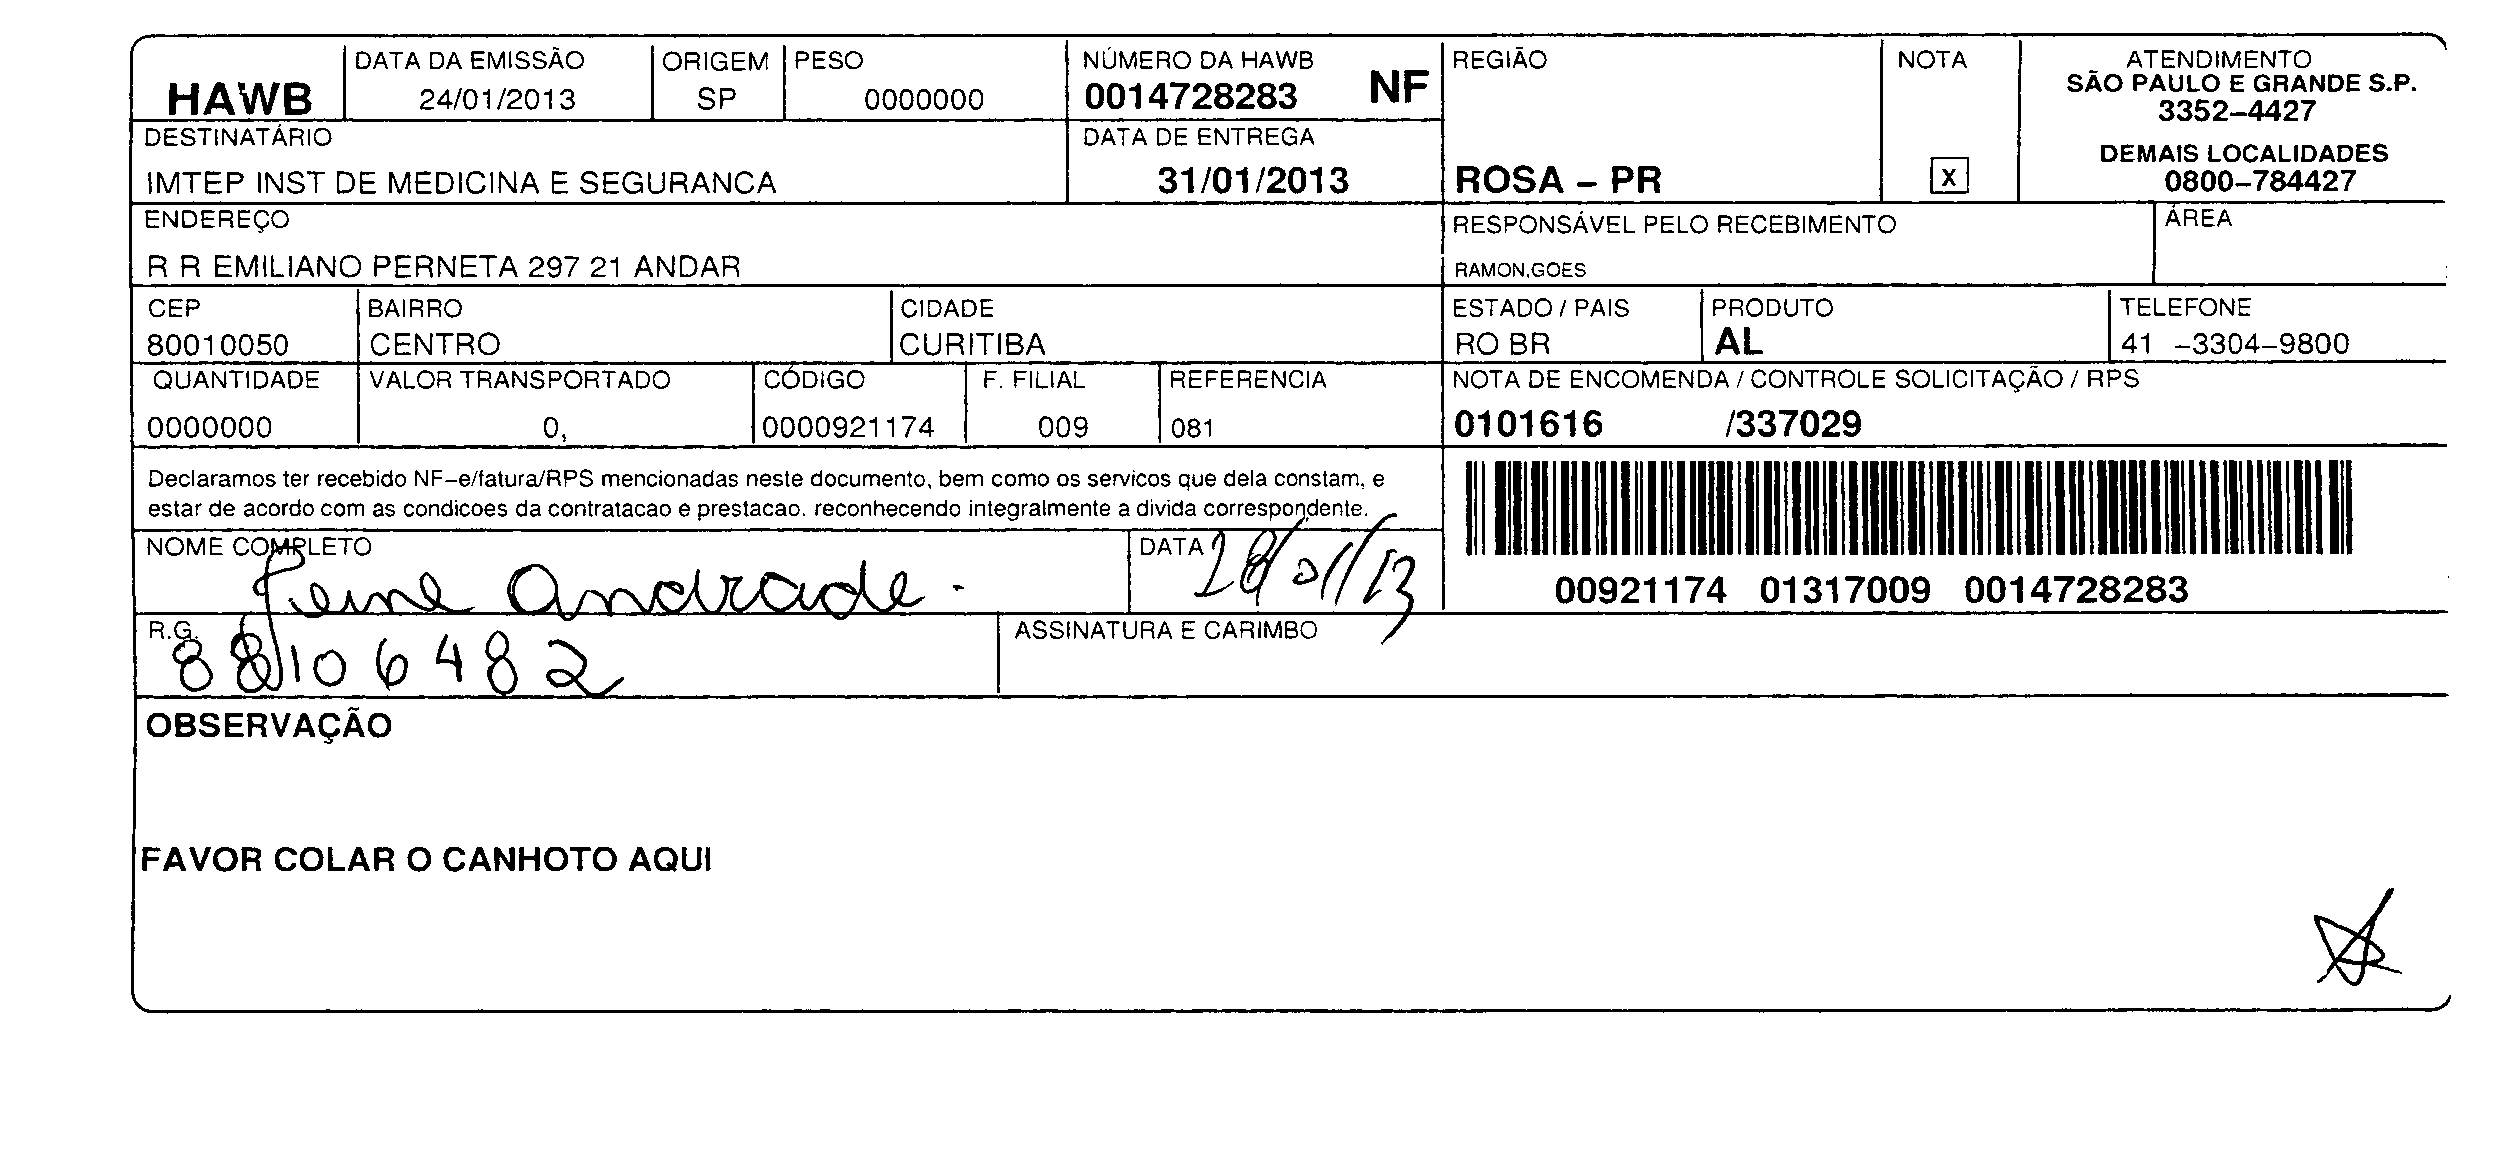 HAWB
DATA DA EMISSÃO
24/01/2013
ORIGEM
SP
PESO
0000000
NÚMERO DA HAWB
0014728283 NF
REGIÃO
ROSA – PR
NOTA
X
ATENDIMENTO
SÃO PAULO E GRANDE S.P.
3352–4427
DEMAIS LOCALIDADES
0800–784427
DESTINATÁRIO
IMTEP INST DE MEDICINA E SEGURANCA
DATA DE ENTREGA
31/01/2013
ENDEREÇO
R R EMILIANO PERNETA 297 21 ANDAR
RESPONSÁVEL PELO RECEBIMENTO
RAMON.GOES
ÁREA
CEP
80010050
BAIRRO
CENTRO
CIDADE
CURITIBA
ESTADO / PAIS
RO BR
PRODUTO
AL
TELEFONE
41 –3304–9800
QUANTIDADE
0000000
VALOR TRANSPORTADO
0,
CÓDIGO
0000921174
F. FILIAL
009
REFERENCIA
081
NOTA DE ENCOMENDA / CONTROLE SOLICITAÇÃO / RPS
0101616 /337029
Declaramos ter recebido NF–e/fatura/RPS mencionadas neste documento, bem como os servicos que dela constam, e
estar de acordo com as condicoes da contratacao e prestacao. reconhecendo integralmente a divida correspondente.
00921174 01317009 0014728283
NOME COMPLETO
Andrade
DATA
28/01/13
R.G.
88106482
ASSINATURA E CARIMBO
OBSERVAÇÃO
FAVOR COLAR O CANHOTO AQUI